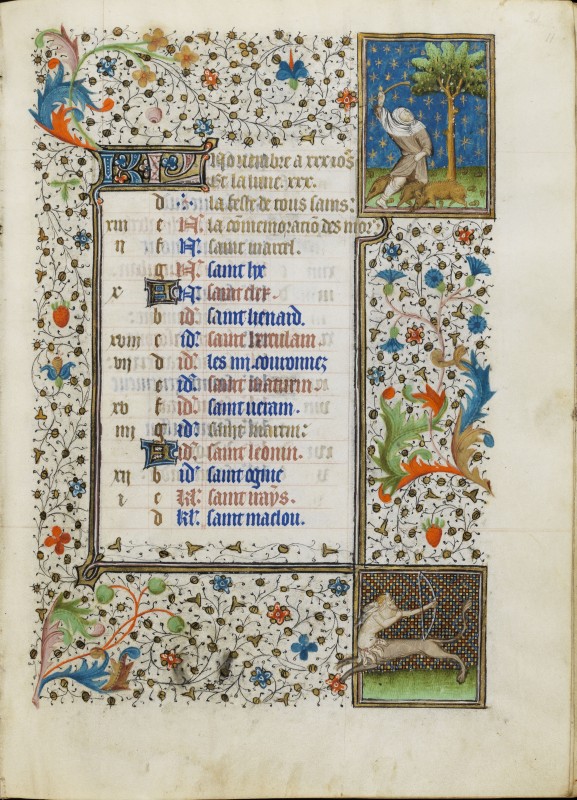 KL Nouembre a xxx ios
Et la lune. xxx.
d la feste de tous sains.
xiii e N. la cōmemoratiō des mor
ii f N. saint marcel.
g N. saint
x A N. saint cler.
b id. saint lienard.
xviii c id. saint
vii d id. les iiii. couronnez
e id. saint
xv f id. saint verain.
iiii g id. saint martin.
A id. saint leonin.
xii b id. saint
i c kl. saint
d kl. saint maclou.